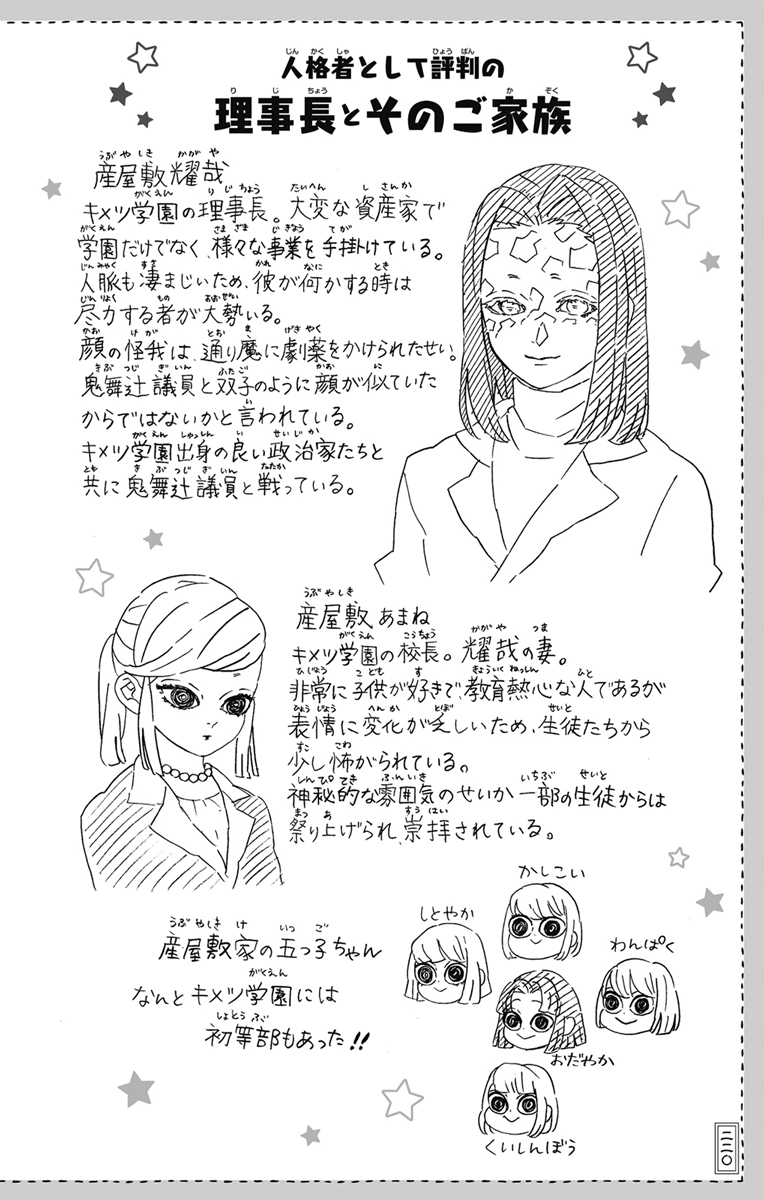 人格者として評判の
理事長とそのご家族
産屋敷耀哉
キメツ学園の理事長。大変な資産家で
学園だけでなく、様々な事業を手掛けている。
人脈も凄まじいため、彼が何かする時は
尽力する者が大勢いる。
顔の怪我は、通り魔に劇薬をかけられたせい。
鬼舞辻議員と双子のように顔が似ていた
からではないかと言われている。
キメツ学園出身の良い政治家たちと
共に鬼舞辻議員と戦っている。
産屋敷あまね
キメツ学園の校長。耀哉の妻。
非常に子供が好きで、教育熱心な人であるが
表情に変化が乏しいため、生徒たちから
少し怖がられている。
神秘的な雰囲気のせいか一部の生徒からは
祭り上げられ、崇拝されている。
産屋敷家の五つ子ちゃん
なんとキメツ学園には
初等部もあった!!
かしこい
しとやか
わんぱく
おだやか
くいしんぼう
二三〇